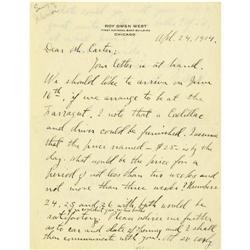 ROY OWEN WEST
FIRST NATIONAL BANK BUILDING
CHICAGO
Apl. 24, 1914.
Dear Mr. Carter:
Your letter is at hand.
We should like to arrive on June
16th, if we arrange to be at the
Farragut. I note that a Cadillac
and driver could be furnished. I assume
that the price named - $25 - is by the
day. What would be the price for a
period of not less than two weeks and
not more than three weeks? Numbers
24, 25 and 26 with bath would be
satisfactory. Please advise me further
as to car and date of and I shall
then communicate with you.